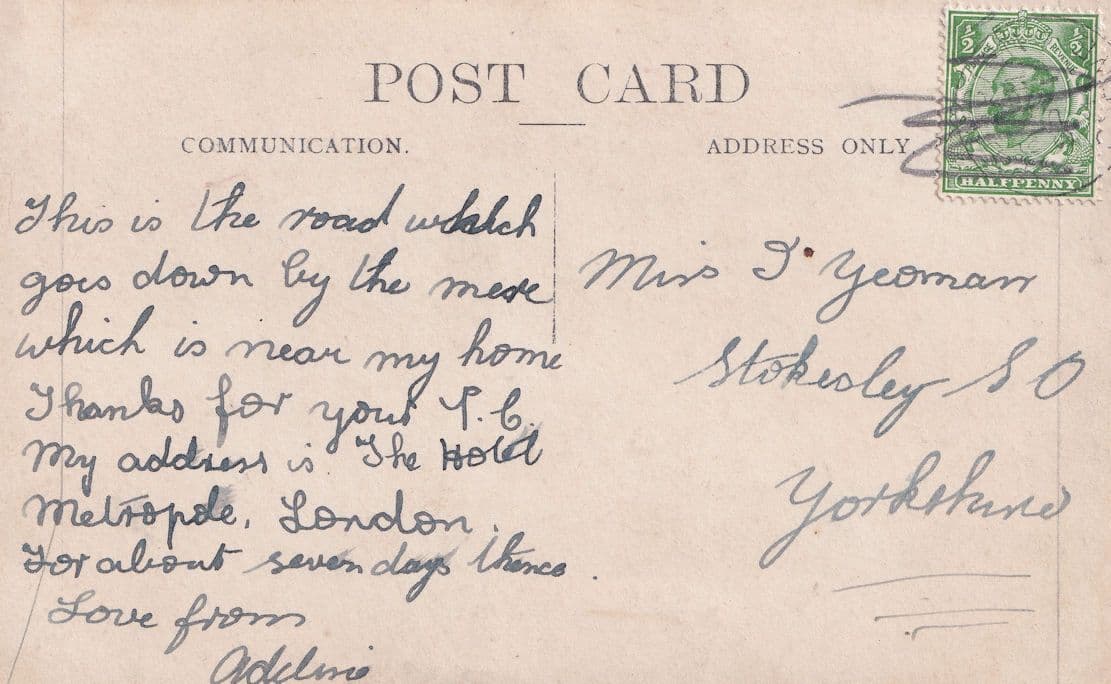 POST CARD
COMMUNICATION.
ADDRESS ONLY
½ ½
POSTAGE REVENUE
HALFPENNY
This is the road which
goes down by the mere
which is near my home
Thanks for your P.C.
My address is "The Hotel
Metropole, London.
For about seven days thence.
Love from
Adeline
Miss I Yeoman
Stokesley S O
Yorkshire